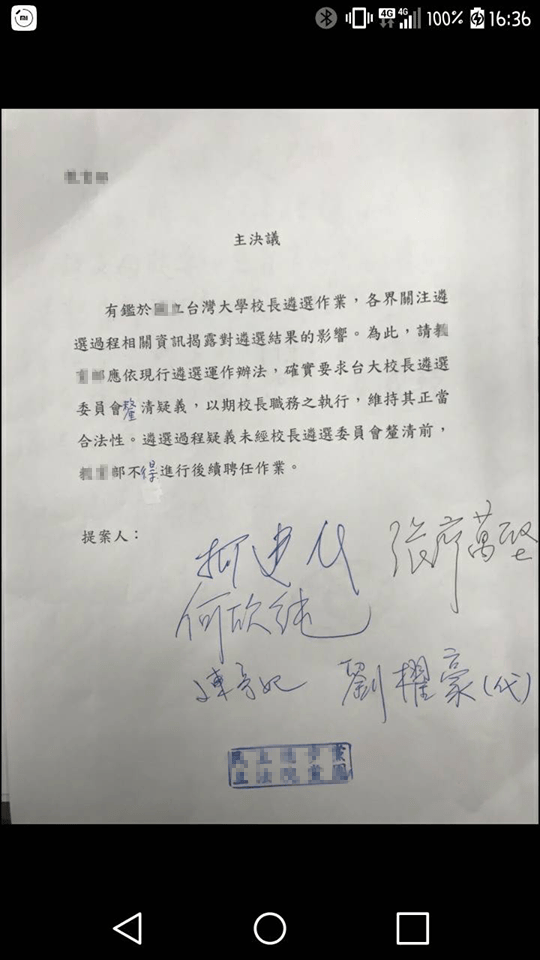 4G
4G
100%
16:36
主決議
有鑑於 立台灣大學校長遴選作業，各界關注遴
選過程相關資訊揭露對遴選結果的影響。為此，請
部應依現行遴選運作辦法，確實要求台大校長遴選
委員會釐清疑義，以期校長職務之執行，維持其正當
合法性。遴選過程疑義未經校長遴選委員會釐清前，
部不得進行後續聘任作業。
提案人：
柯建 張廖萬堅
何欣純
陳亭妃 劉櫂豪(代)